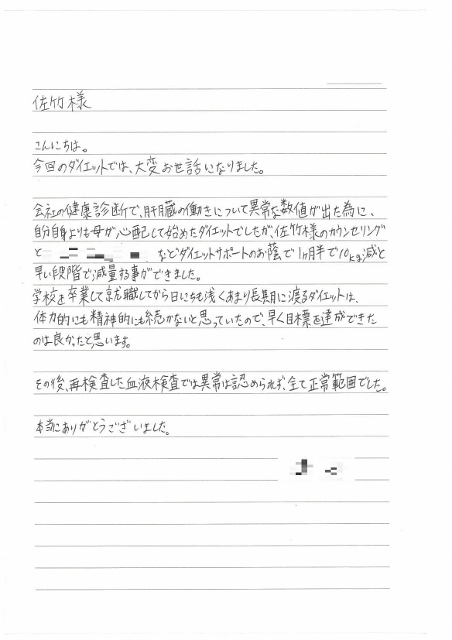 佐竹様
こんにちは。
今回のダイエットでは、大変お世話になりました。
会社の健康診断で、肝臓の働きについて異常な数値が出た為に、
自分自身よりも母が心配して始めたダイエットでしたが、佐竹様のカウンセリング
と などダイエットサポートのお蔭で1ヶ月半で10kg減と
早い段階で減量する事ができました。
学校を卒業して就職してから日にちも浅くあまり長期に渡るダイエットは、
体力的にも精神的にも続かないと思っていたので、早く目標を達成できた
のは良かったと思います。
その後、再検査した血液検査では異常は認められず、全て正常範囲でした。
本当にありがとうございました。